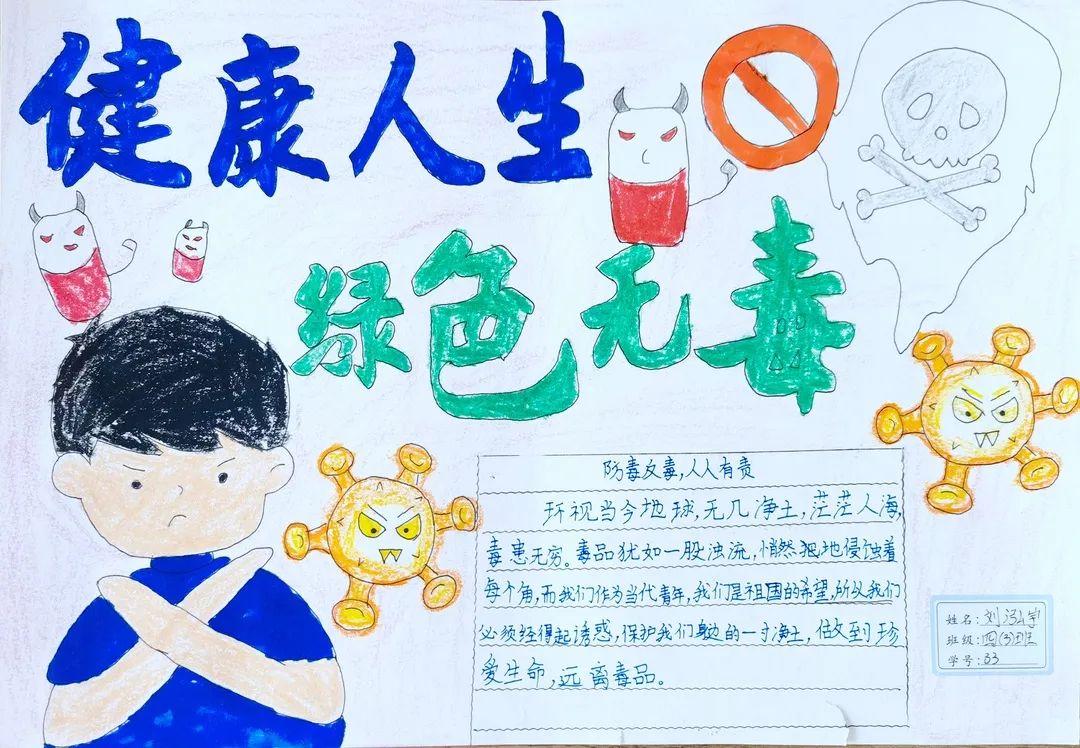 健康人生
绿色无毒
防毒反毒,人人有责
环视当今地球,无几净土,茫茫人海,
毒患无穷。毒品犹如一股浊流,悄然地侵蚀着
每个角,而我们作为当代青年,我们是祖国的希望,所以我们
必须经得起诱惑,保护我们身边的一寸净土,做到珍
爱生命,远离毒品。
姓名:刘泓宇
班级:四(3)班
学号:33